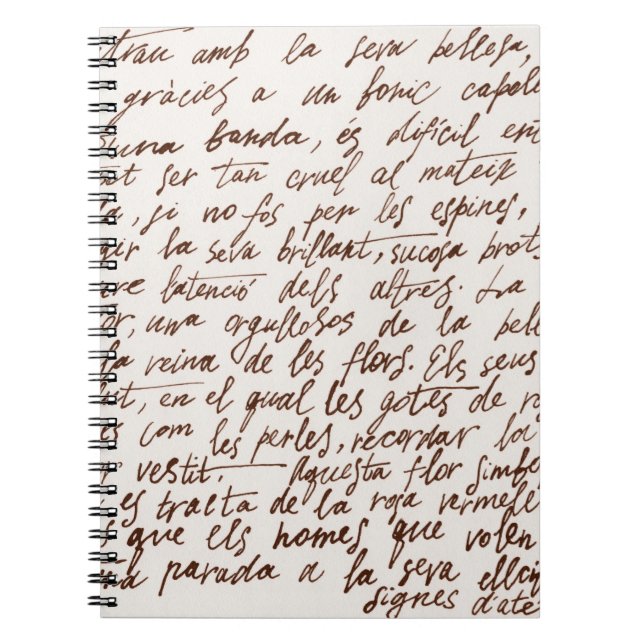 trau amb la seva bellesa,
gràcies a un bonic capoll
una banda, és difícil en
pot ser tan cruel al mateix
, si no fos per les espines,
gir la seva brillant, sucosa brot
re l'atenció dels altres. La
or, una orgullosos de la bell
la reina de les flors. Els seus
it, en el qual les gotes de ro
es com les perles, recordar la
vestit. Aquesta flor simbo
es tracta de la rosa vermell
que els homes que volen
parada a la seva
signes d'ate